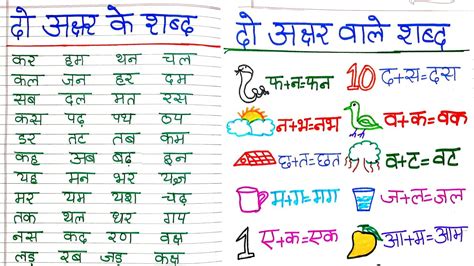 दो अक्षर के शब्द
कर हम थन चल
कल जन हर दम
सब दल मत रस
कस पढ़ पथ ठप
डर तट तब कम
कह अब बढ़ इन
यह मन भर यज्ञ
मर यम यश चढ़
तक थल घर गप
नस कद रण वक्ष
लड़ रब जड़ कक्ष
दो अक्षर वाले शब्द
फ+न=फन
10 द+स=दस
न+भ=नभ
व+क=वक
छ+त=छत
व+ट=वट
म+ग=मग
ज+ल=जल
1 ए+क=एक
आ+म=आम